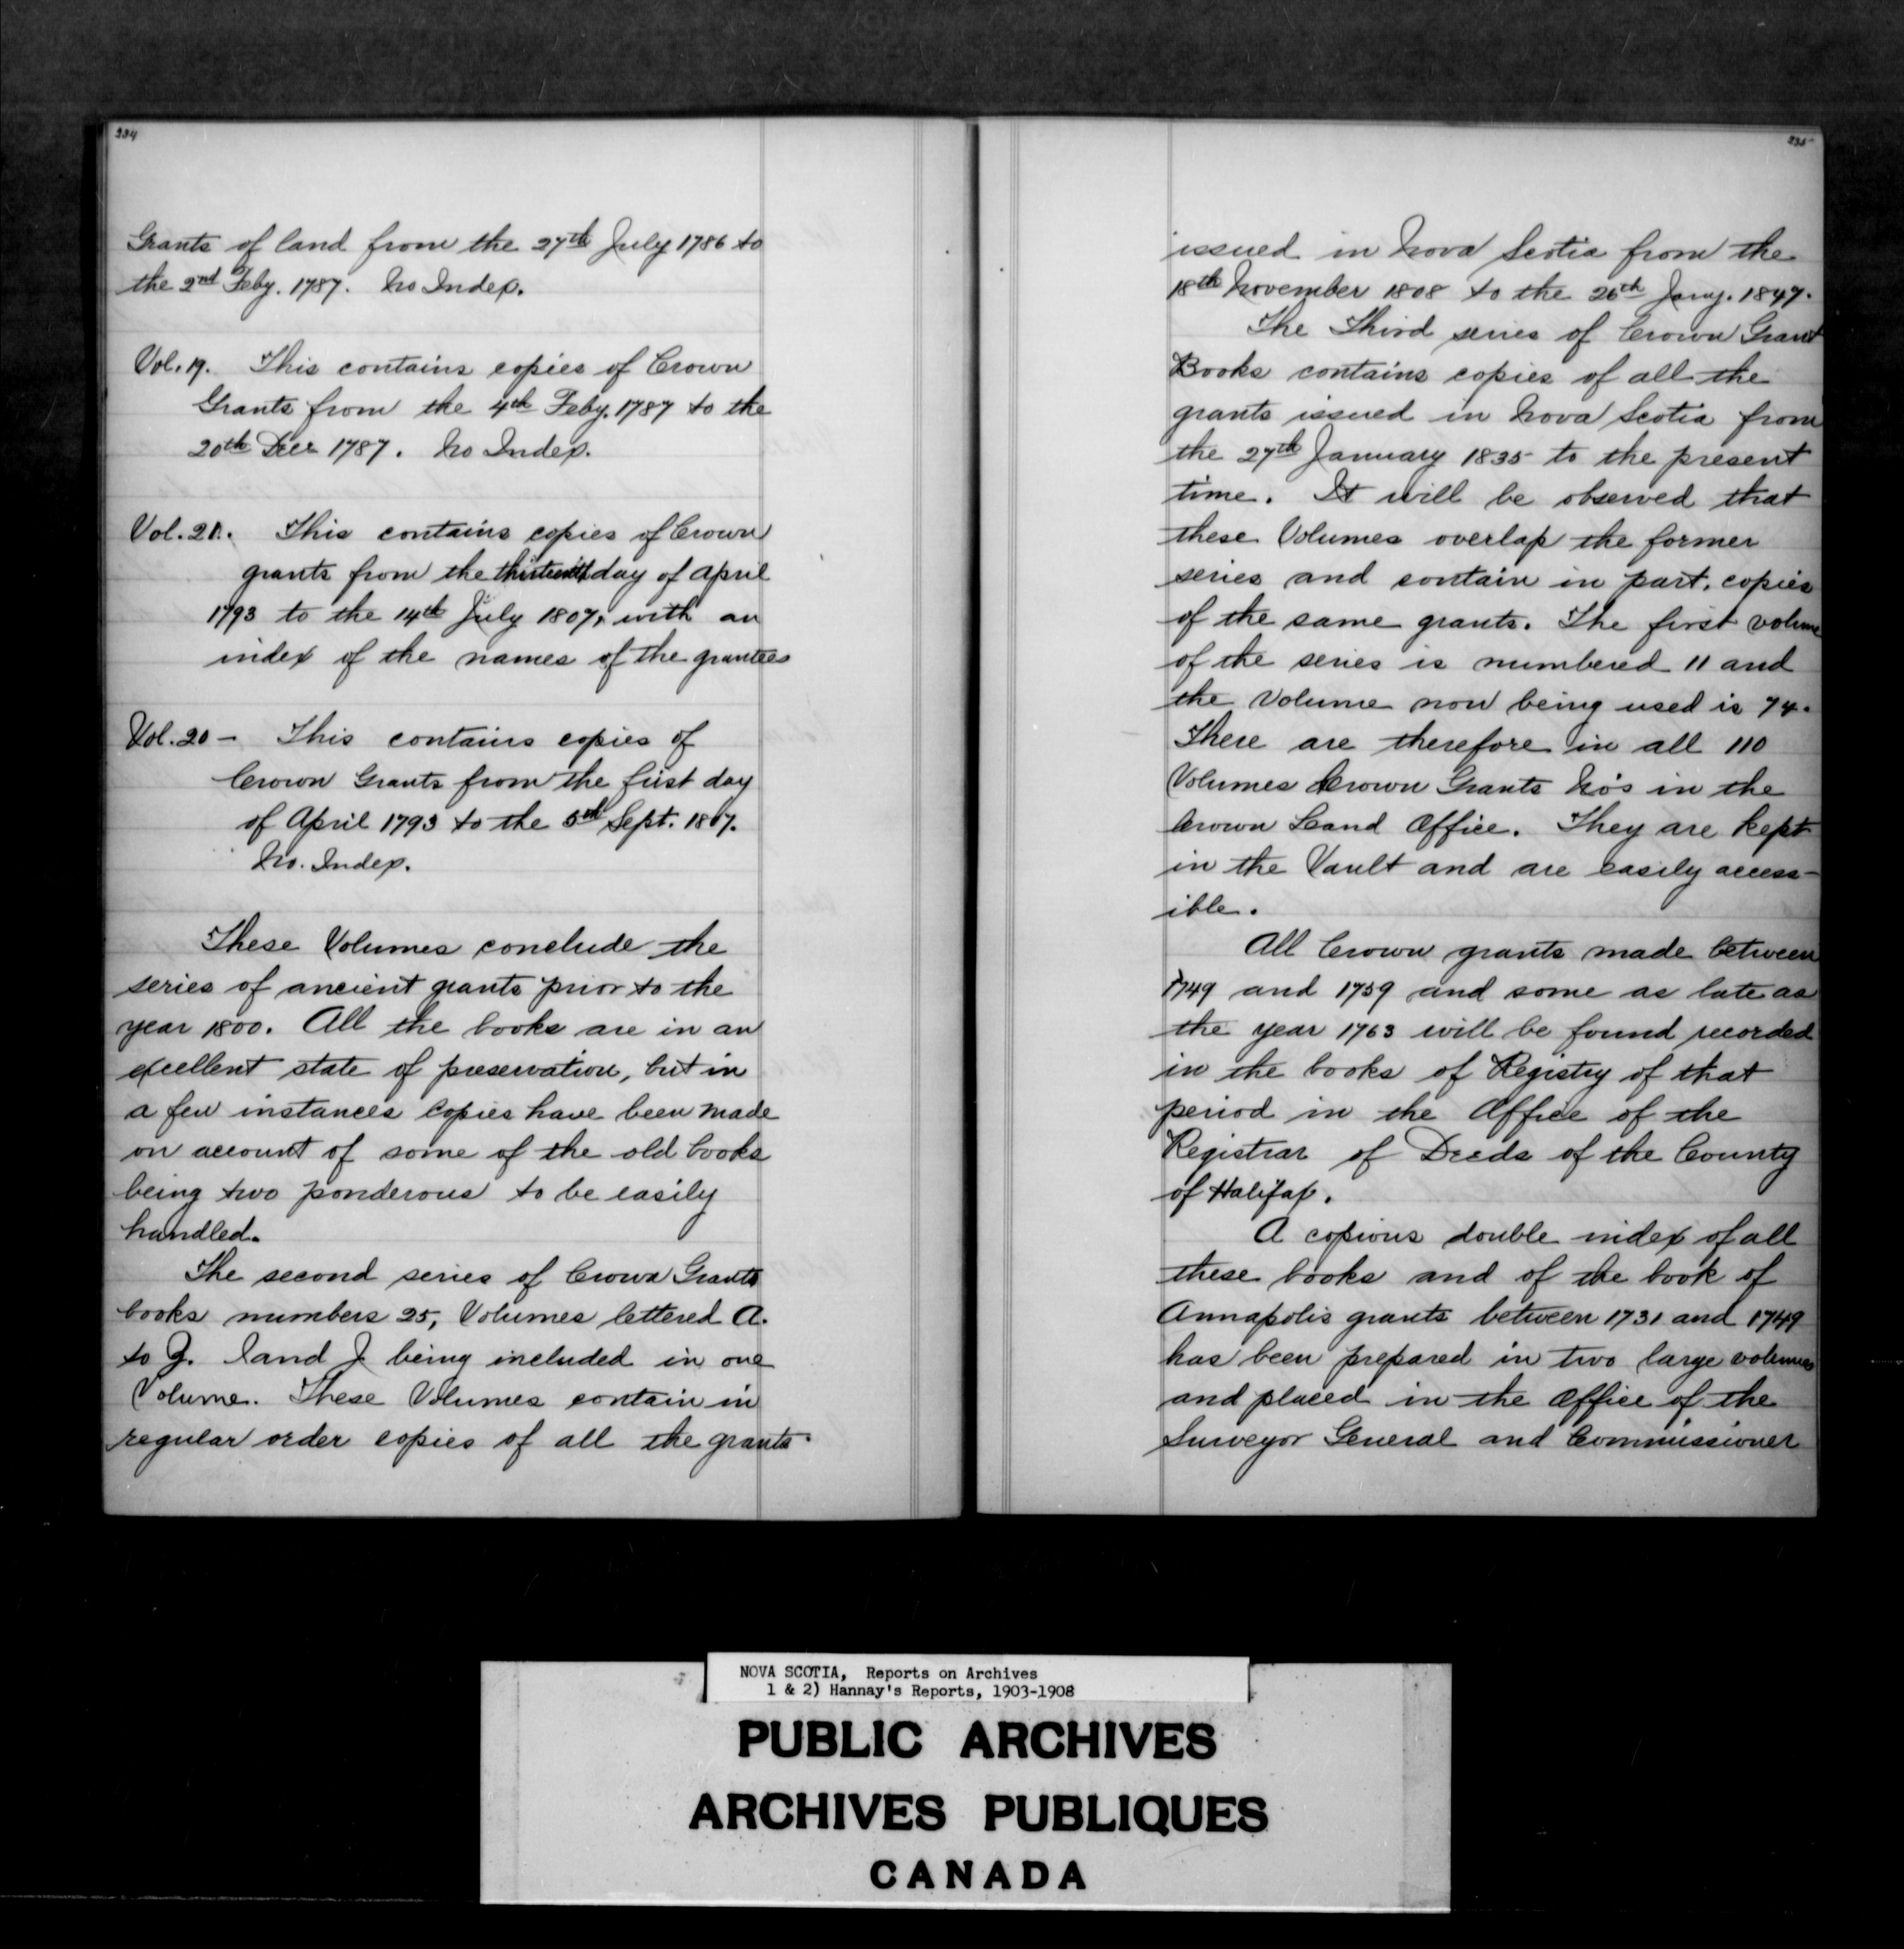 334
Grants of land from the 27th July 1786 to
the 2nd Feby. 1787. No Index.
Vol. 19. This contains copies of Crown
Grants from the 4th Feby. 1787 to the
20th Decr 1787. No Index.
Vol. 21. This contains copies of Crown
grants from the thirteenth day of April
1793 to the 14th July 1807, with an
index of the names of the grantees
Vol. 20 - This contains copies of
Crown Grants from the first day
of April 1793 to the 5th Sept. 1807.
No. Index.
These Volumes conclude the
series of ancient grants prior to the
year 1800. All the books are in an
excellent state of preservation, but in
a few instances copies have been made
on account of some of the old books
being two ponderous to be easily
handled.
The second series of Crown Grants
books numbers 25, Volumes lettered A.
to Z. I and J being included in one
Volume. These Volumes contain in
regular order copies of all the grants.
335
issued in Nova Scotia from the
18th November 1808 to the 26th Jany. 1847.
The Third series of Crown Grant
Books contains copies of all the
grants issued in Nova Scotia from
the 27th January 1835 to the present
time. It will be observed that
these Volumes overlap the former
series and contain in part, copies
of the same grants. The first volume
of the series is numbered 11 and
the Volume now being used is 74.
There are therefore in all 110
Volumes Crown Grants No's in the
Crown Land Office. They are kept
in the Vault and are easily access-
ible.
All Crown grants made between
1749 and 1759 and some as late as
the year 1763 will be found recorded
in the books of Registry of that
period in the Office of the
Registrar of Deeds of the County
of Halifax.
A copious double index of all
these books and of the book of
Annapolis grants between 1731 and 1749
has been prepared in two large volumes
and placed in the Office of the
Surveyor General and Commissioner
NOVA SCOTIA, Reports on Archives
1 & 2) Hannay's Reports, 1903-1908
PUBLIC ARCHIVES
ARCHIVES PUBLIQUES
CANADA